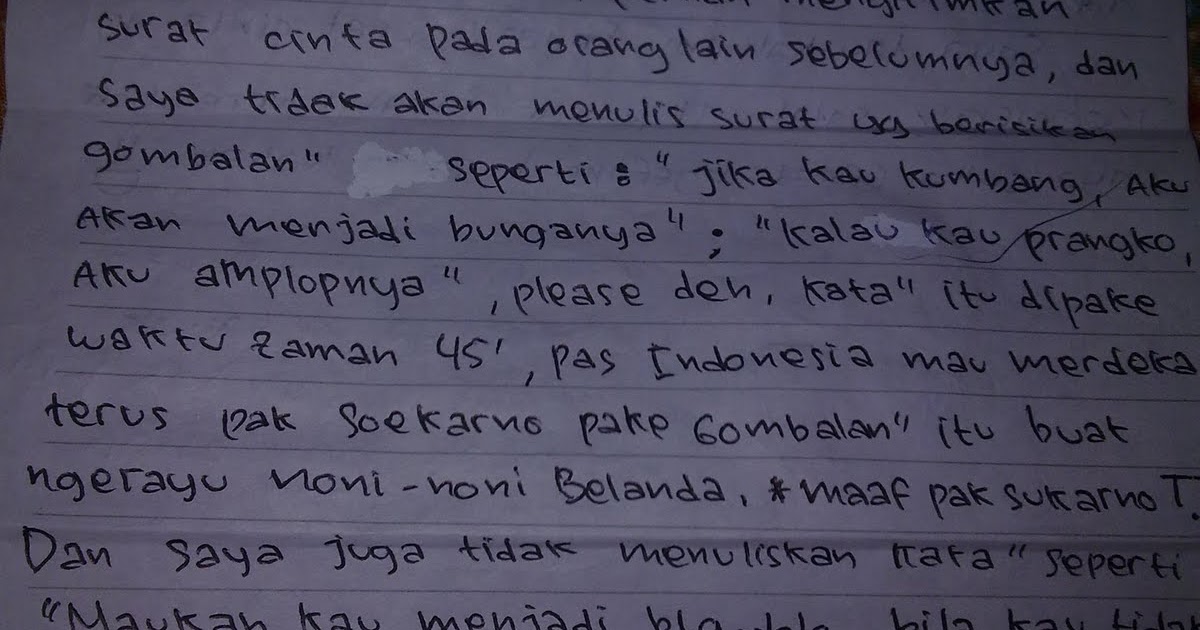 mengirimkan
surat cinta pada orang lain sebelumnya, dan
saya tidak akan menulis surat yg berisikan
gombalan" seperti : "jika kau kumbang, Aku
Akan menjadi bunganya" ; "kalau kau prangko,
Aku amplopnya", please deh, kata" itu dipake
waktu zaman 45', pas Indonesia mau merdeka
terus pak Soekarno pake Gombalan" itu buat
ngerayu noni-noni Belanda, *maaf pak sukarno T.
Dan saya juga tidak menuliskan kata" seperti
"Maukah kau menjadi bla bila kau